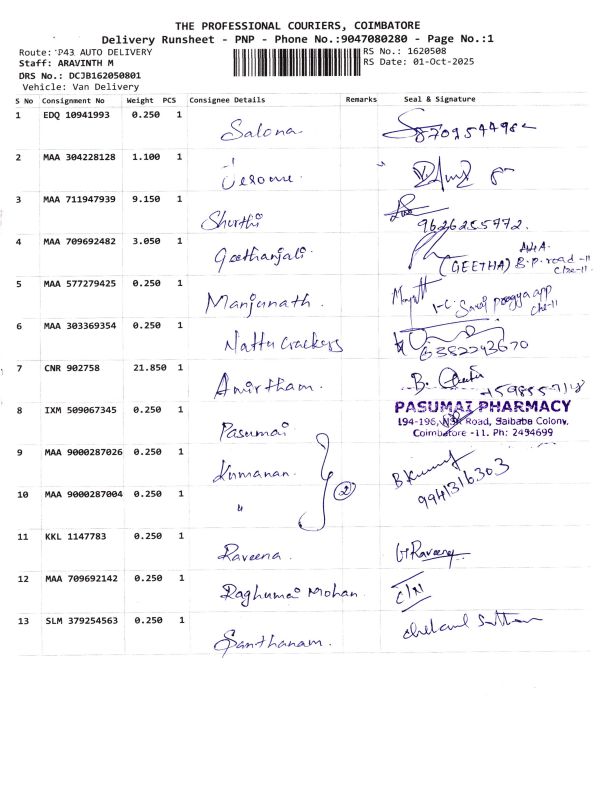 THE PROFESSIONAL COURIERS, COIMBATORE
Delivery Runsheet - PNP - Phone No.:9047080280 - Page No.:1
Route: P43 AUTO DELIVERY RS No.: 1620508
Staff: ARAVINTH M RS Date: 01-Oct-2025
DRS No.: DCJB162050801
Vehicle: Van Delivery
S No Consignment No Weight PCS Consignee Details Remarks Seal & Signature
1 EDQ 10941993 0.250 1 Salona
2 MAA 304228128 1.100 1 Jerome.
3 MAA 711947939 9.150 1 Shurthi 9626255772.
4 MAA 709692482 3.050 1 Geethanjali. (GEETHA) B.P. road -11
5 MAA 577279425 0.250 1 Manjunath.
6 MAA 303369354 0.250 1 Nattu Crackers 6382243670
7 CNR 902758 21.850 1 Amirtham. B.
8 IXM 509067345 0.250 1 Pasumai PASUMAI PHARMACY
194-196, NSR Road, Saibaba Colony,
Coimbatore -11. Ph: 2454699
9 MAA 9000287026 0.250 1 Kumanan. 2 B Kumar 9941316303
10 MAA 9000287004 0.250 1 "
11 KKL 1147783 0.250 1 Raveena. Raveena
12 MAA 709692142 0.250 1 Raghumai Mohan. C/N
13 SLM 379254563 0.250 1 Santhanam.